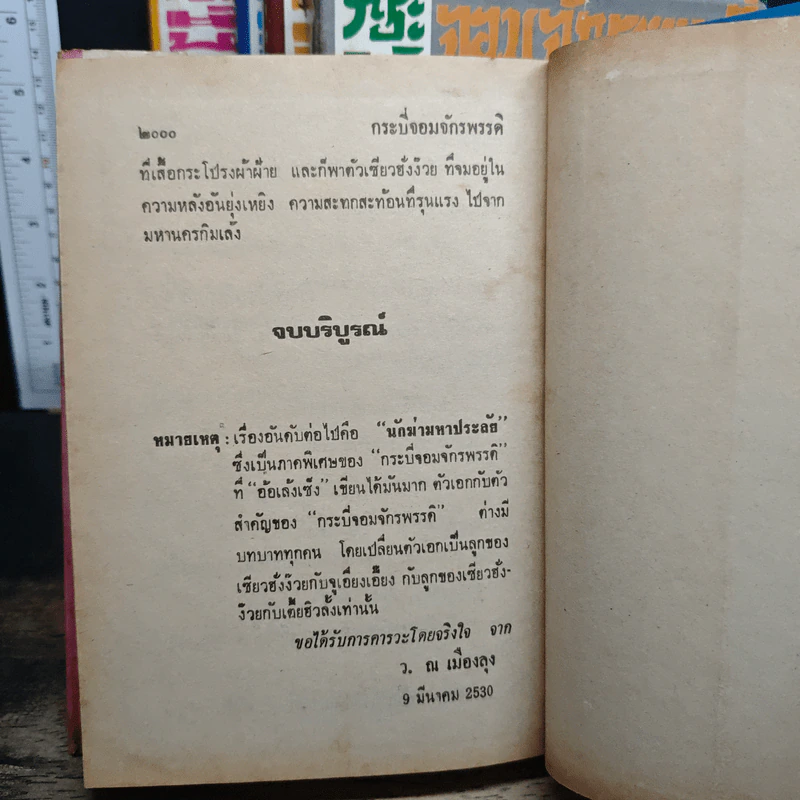 ๒๐๐๐ กระบี่จอมจักรพรรดิ
ที่เสื้อกระโปรงผ้าฝ้าย และก็พาตัวเซียวฮั่งง้วย ที่จมอยู่ใน
ความหลังอันยุ่งเหยิง ความสะทกสะท้อนที่รุนแรง ไปจาก
มหานครกิมเล้ง
จบบริบูรณ์
หมายเหตุ : เรื่องอันดับต่อไปคือ “นักฆ่ามหาประลัย”
ซึ่งเป็นภาคพิเศษของ “กระบี่จอมจักรพรรดิ”
ที่ “อ้อเล้งเซ็ง” เขียนได้มันมาก ตัวเอกกับตัว
สำคัญของ “กระบี่จอมจักรพรรดิ” ต่างมี
บทบาททุกคน โดยเปลี่ยนตัวเอกเป็นลูกของ
เซียวฮั่งง้วยกับจูเอี่ยงเอี๊ยง กับลูกของเซียวฮั่ง-
ง้วยกับเตี๋ยฮิวลั้งเท่านั้น
ขอได้รับการคารวะโดยจริงใจ จาก
ว. ณ เมืองลุง
9 มีนาคม 2530